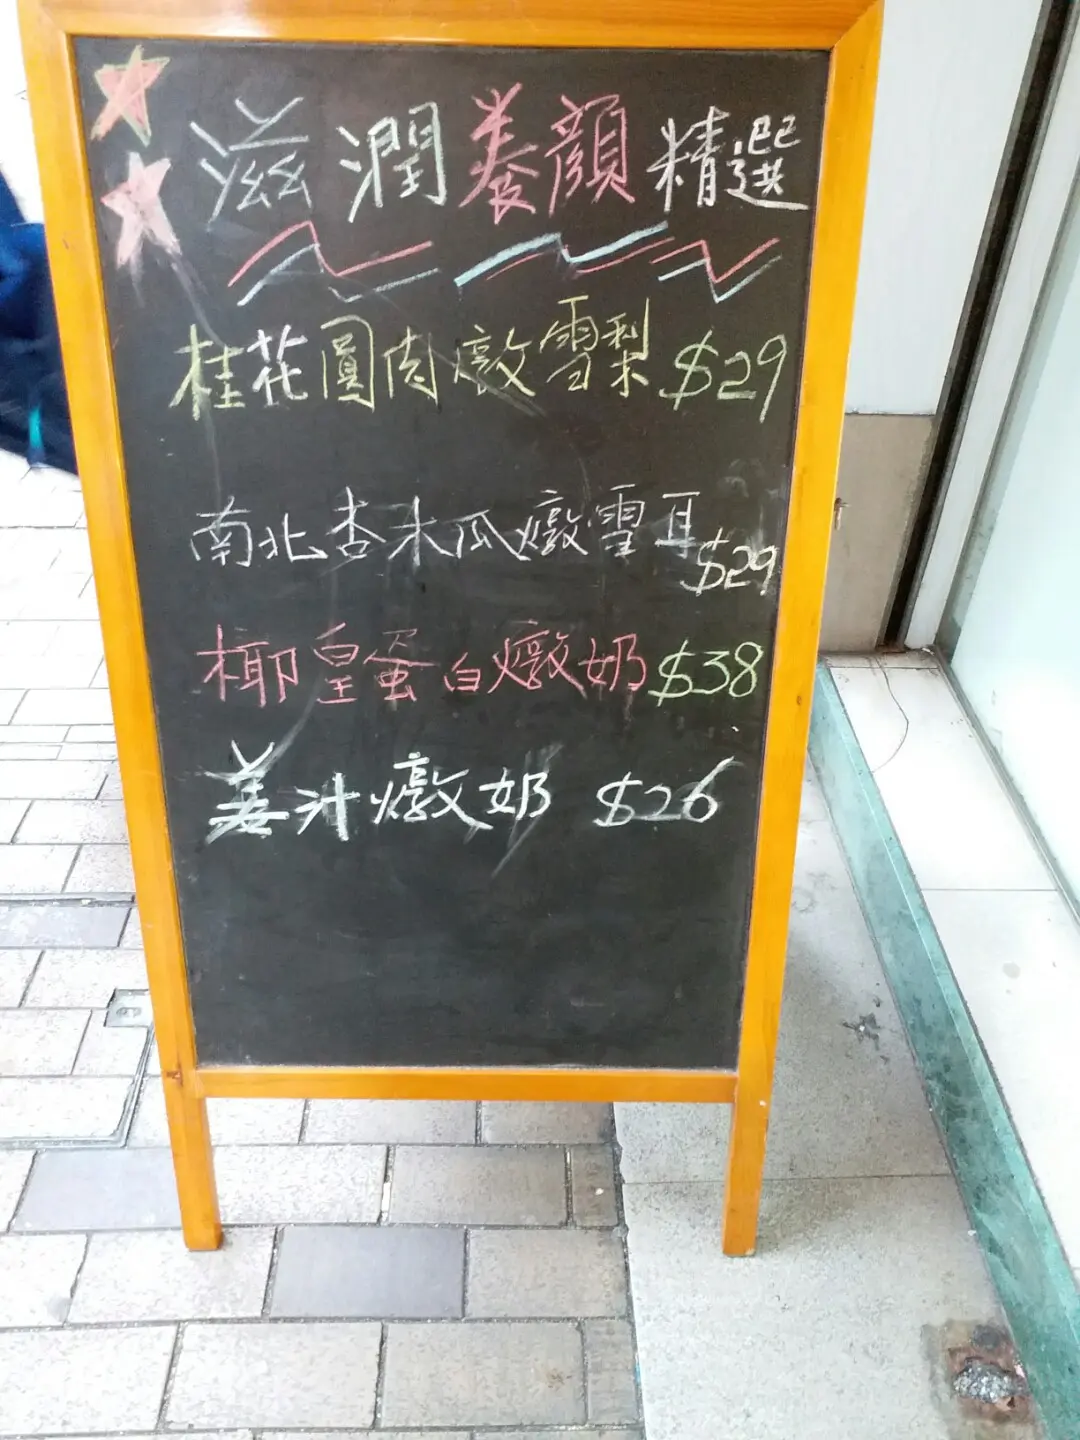 滋潤養顏精選
桂花圓肉燉雪梨 $29
南北杏木瓜燉雪耳 $29
椰皇蛋白燉奶 $38
姜汁燉奶 $26